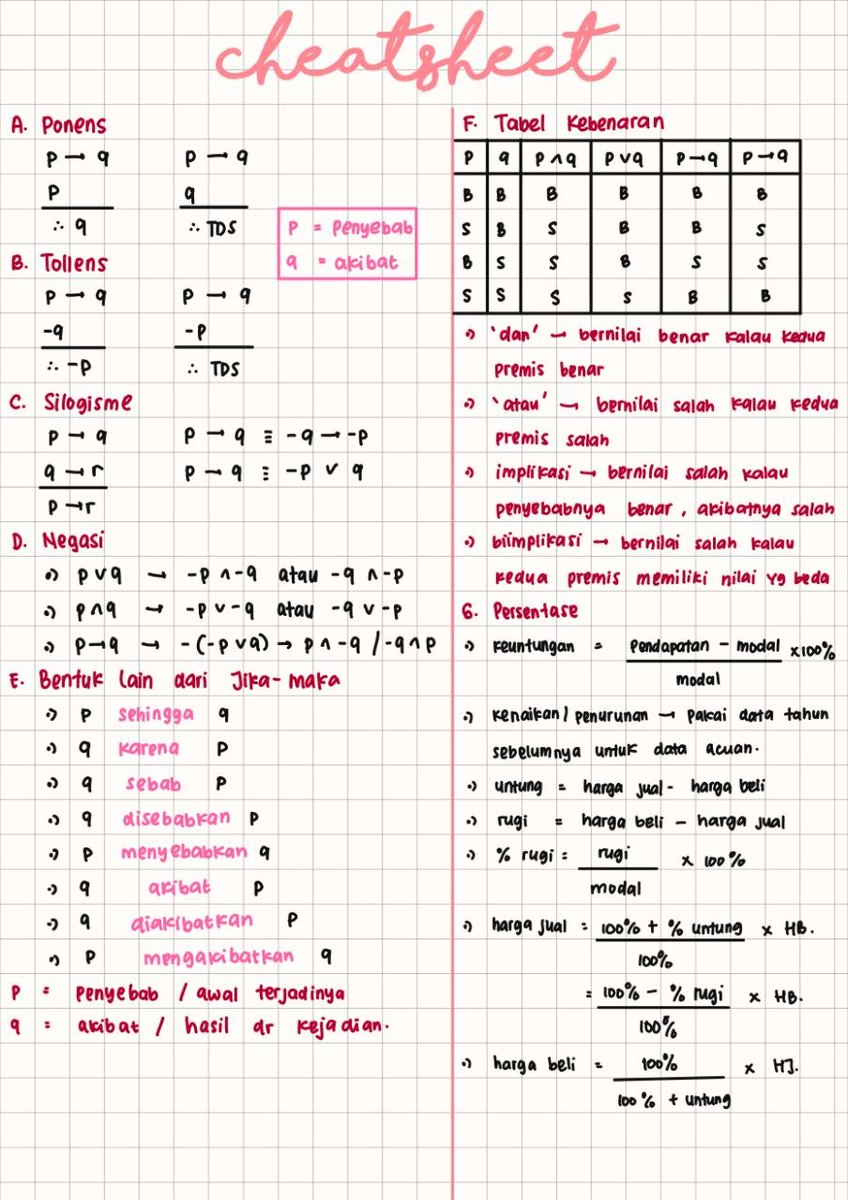 cheatsheet
A. Ponens
p → q p → q
p q
∴ q ∴ TDS
p = penyebab
q = akibat
B. Tollens
p → q p → q
-q -p
∴ -p ∴ TDS
C. Silogisme
p → q p → q ≡ -q → -p
q → r p → q ≡ -p ∨ q
p → r
D. Negasi
•) p ∨ q → -p ∧ -q atau -q ∧ -p
•) p ∧ q → -p ∨ -q atau -q ∨ -p
•) p → q → -(-p ∨ q) → p ∧ -q / -q ∧ p
E. Bentuk lain dari Jika-maka
•) p sehingga q
•) q karena p
•) q sebab p
•) q disebabkan p
•) p menyebabkan q
•) q akibat p
•) q diakibatkan p
•) p mengakibatkan q
p = penyebab / awal terjadinya
q = akibat / hasil dr kejadian.
F. Tabel Kebenaran
p q p ∧ q p ∨ q p → q p → q
B B B B B B
S B S B B S
B S S B S S
S S S S B B
•) 'dan' → bernilai benar kalau kedua
premis benar
•) 'atau' → bernilai salah kalau kedua
premis salah
•) implikasi → bernilai salah kalau
penyebabnya benar, akibatnya salah
•) biimplikasi → bernilai salah kalau
kedua premis memiliki nilai yg beda
G. Persentase
•) keuntungan = pendapatan - modal x100%
modal
•) kenaikan / penurunan → pakai data tahun
sebelumnya untuk data acuan.
•) untung = harga jual - harga beli
•) rugi = harga beli - harga jual
•) % rugi = rugi x 100%
modal
•) harga jual = 100% + % untung x HB.
100%
= 100% - % rugi x HB.
100%
•) harga beli = 100% x HJ.
100% + untung